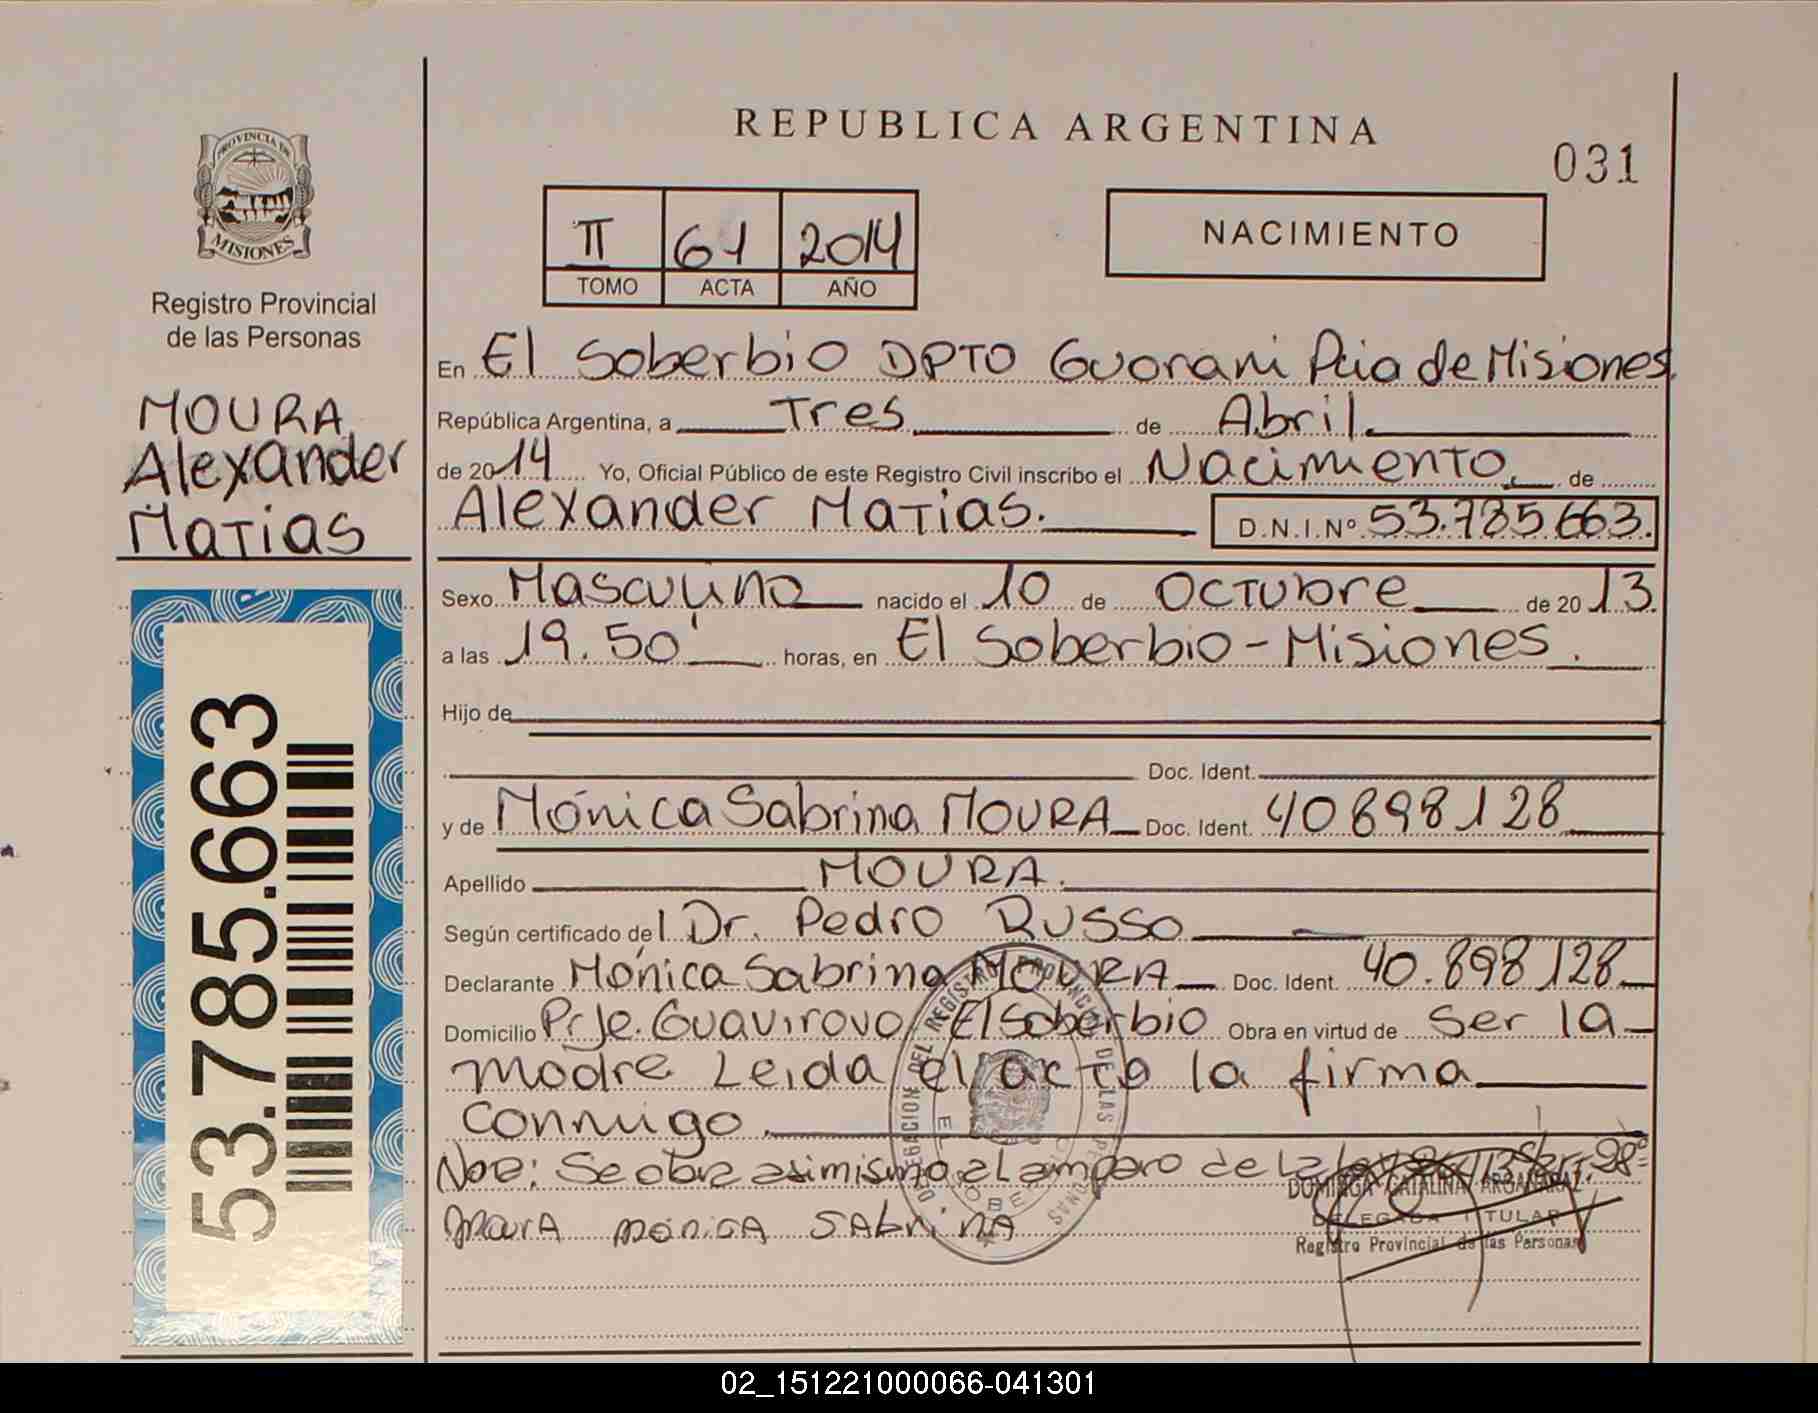 REPUBLICA ARGENTINA
031
PROVINCIA DE
MISIONES
Registro Provincial
de las Personas
II 61 2014
TOMO ACTA AÑO
NACIMIENTO
MOURA
Alexander
Matias
53.785.663
En El Soberbio DPTO Guarani Pcia de Misiones
República Argentina, a Tres de Abril
de 2014 Yo, Oficial Público de este Registro Civil inscribo el Nacimiento de
Alexander Matias. D.N.I.Nº 53.785.663.
Sexo Masculino nacido el 10 de Octubre de 2013.
a las 19.50' horas, en El Soberbio - Misiones.
Hijo de
Doc. Ident.
y de Mónica Sabrina MOURA Doc. Ident. 40898128
Apellido MOURA.
Según certificado del Dr. Pedro Russo
Declarante Mónica Sabrina MOURA Doc. Ident. 40.898.128
Domicilio Prje. Guavirovo El Soberbio Obra en virtud de ser la
madre Leida el acta la firma
conmigo.
Se obra asimismo al amparo de la
DOMINGA CATALINA
moura mónica SAbrinA
DELEGADA TITULAR
Registro Provincial de las Personas
DELEGACION DEL REGISTRO PROVINCIAL DE LAS PERSONAS
EL SOBERBIO
02_151221000066-041301